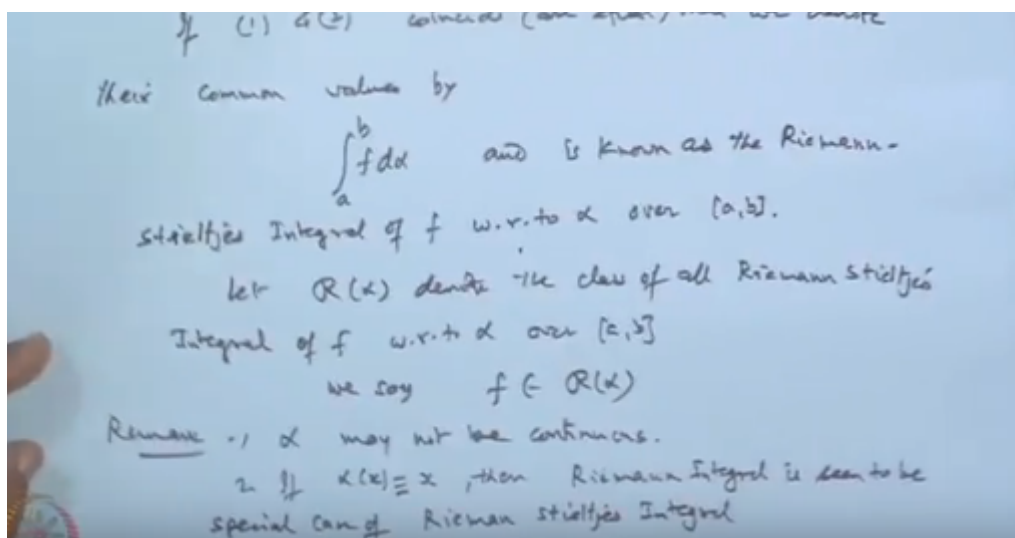 If (1) & (2) coincide (are equal) then we denote
their common values by
∫_a^b f dα and is known as the Riemann-
Stieltjes Integral of f w.r.to α over [a,b].
Let R(α) denote the class of all Riemann Stieltjes
Integral of f w.r.to α over [a,b]
we say f ∈ R(α)
Remark 1 α may not be continuous.
2 If α(x) ≡ x, then Riemann Integral is seen to be
special case of Rieman Stieltjes Integral